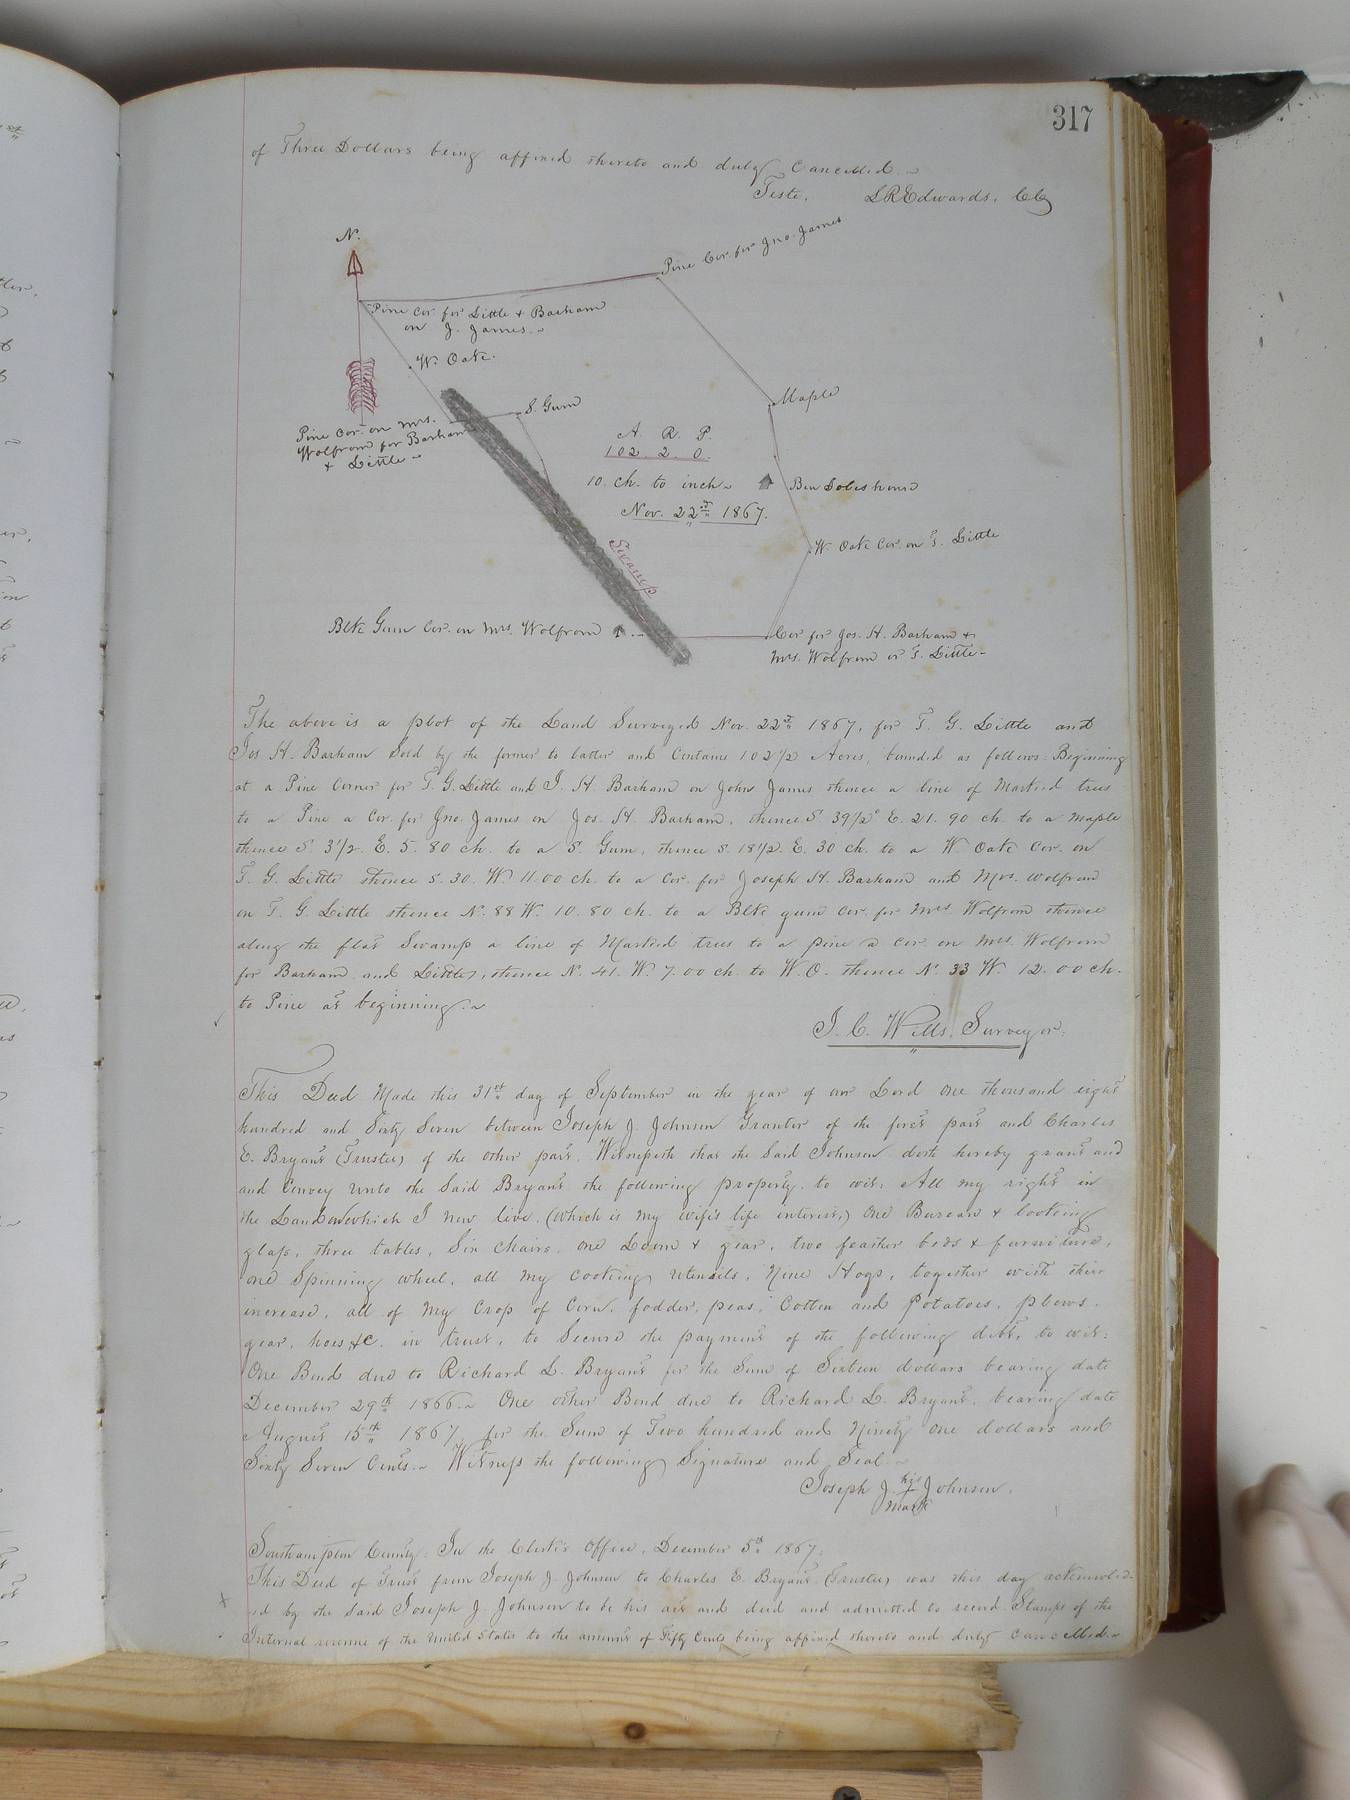 317
of Three Dollars being affixed thereto and duly Cancelled.
Teste, L R Edwards, CC
N.
Pine Cor. for Jno. James
Pine Cor. for Little & Barham
on J. James.
W. Oak.
S. Gum
Maple
Pine Cor. on Mrs.
Wolfrom for Barham
& Little
A. R. P.
102. 2. 0
10. Ch. to inch
Nov. 22nd 1867.
Ben house
W Oak Cor. on T. Little
Swamp
Blk Gum Cor. on Mrs. Wolfrom
Cor for Jos. H. Barham &
Mrs. Wolfrom on T. Little
The above is a plot of the Land Surveyed Nov. 22nd 1867, for T. G. Little and
Jos H. Barham Sold by the former to latter and Contains 102 1/2 Acres, bounded as follows: Beginning
at a Pine Corner for T. G. Little and J. H. Barham on John James thence a line of Marked trees
to a Pine a Cor. for Jno. James on Jos. H. Barham, thence S 39 1/2° E. 21. 90 ch. to a Maple
thence S. 3 1/2 E. 5. 80 ch. to a S. Gum, thence S. 18 1/2. E. 30 ch. to a W Oak Cor. on
T. G. Little thence S. 30. W. 11.00 ch. to a Cor. for Joseph H. Barham and Mrs. Wolfrom
on T. G. Little thence N. 88 W. 10. 80 ch. to a Blk gum Cor. for Mrs Wolfrom thence
along the flat Swamp a line of Marked trees to a pine a cor on Mrs. Wolfrom
for Barham and Little, thence N. 41. W. 7.00 ch. to W. O. thence N. 33 W. 12.00 ch.
to Pine at beginning.
J. C. Wills, Surveyor.
This Deed Made this 31st day of September in the year of our Lord One thousand eight
hundred and Sixty Seven between Joseph J. Johnson Grantor of the first part and Charles
E. Bryant (Trustee) of the other part. Witnesseth that the Said Johnson doth hereby grant and
and Convey unto the Said Bryant the following property. to wit: All my right in
the Land on which I now live, (which is my wife's life interest,) One Bureau & looking
glass, three tables, Six Chairs, One Loom & gear, two feather beds & furniture,
one Spinning wheel, all my cooking utensils, Nine Hogs, together with their
increase, all of my Crop of Corn, fodder, peas, Cotton and Potatoes, plows,
gear, hoes &C. in trust, to Secure the payment of the following debts, to wit:
One Bond due to Richard L. Bryant for the Sum of Sixteen dollars bearing date
December 29th 1866. One other Bond due to Richard L. Bryant, bearing date
August 15th 1867, for the Sum of Two hundred and Ninety One dollars and
Sixty Seven Cents. Witness the following Signature and Seal
Joseph J. his Johnson.
mark
Southampton County: In the Clerk's Office, December 5th 1867.
This Deed of Trust from Joseph J. Johnson to Charles E. Bryant (Trustee) was this day acknowled-
ed by the Said Joseph J. Johnson to be his act and deed and admitted to record. Stamps of the
Internal revenue of the United States to the amount of Fifty Cents being affixed thereto and duly Cancelled.